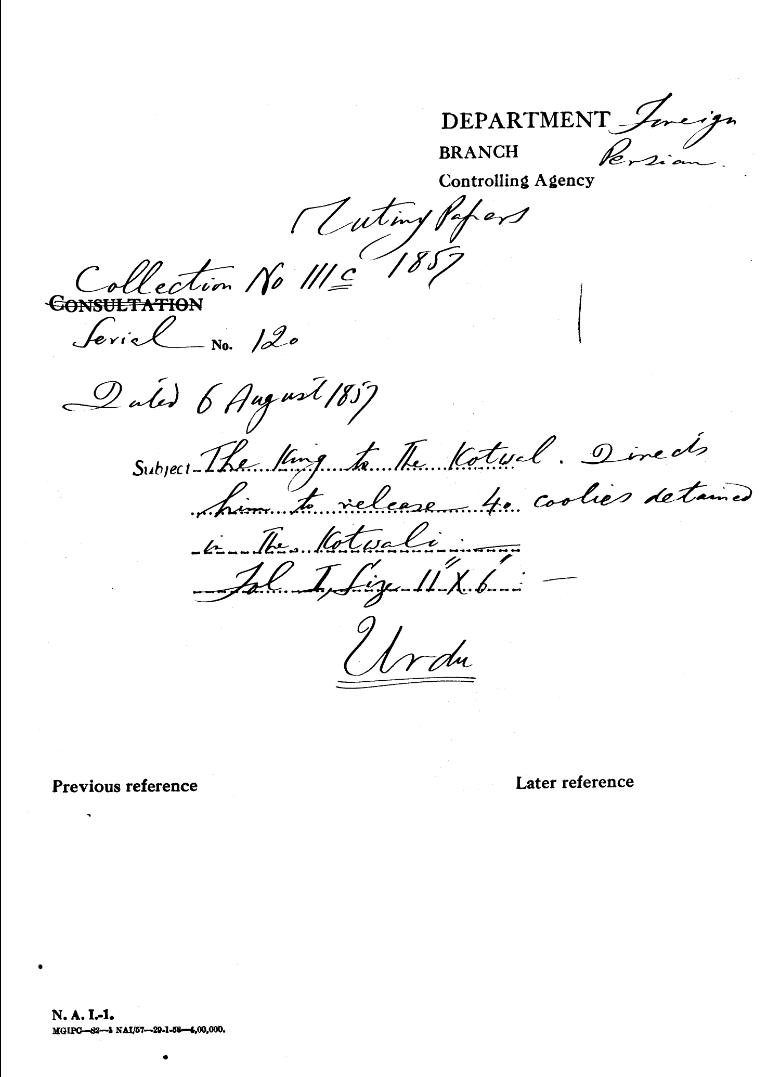 DEPARTMENT Foreign
BRANCH Persian.
Controlling Agency
Mutiny Papers
1857
Collection No III C
CONSULTATION
Serial No. 120
Dated 6 August 1857
Subject The King to the Kotwal. Directs
him to release 40 coolies detained
in the Kotwali.
Fol I, Size 11" X 6" —
Urdu
Previous reference
Later reference
N. A. I.-1.
MGIPC—82—1 NAI/57—29-1-58—4,00,000.